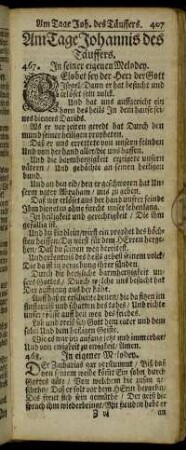 Am Tage Joh. des Täuffers. 407
Am Tage Johannis des
Täuffers.
467. In seiner eigenen Melodey.
Gelobet sey der Herr der Gott
Israel. Dann er hat besucht und
erlöset sein volck.
Und hat uns auffgericht ein
horn des heils In dem hause sei-
nes dieners Davids.
Als er vor zeiten geredt hat Durch den
mund seiner heiligen propheten.
Daß er uns errettete von unsern feinden
Und von der hand aller die uns hassen.
Und die barmhertzigkeit erzeigete unsern
vätern / Und gedächte an seinen heiligen
bund.
Und an den eid den er geschworen hat Un-
serm vater Abraham / uns zu geben.
Daß wir erlöset aus der hand unsrer feinde
Ihm dieneten ohne forcht unser lebenlang.
In heiligkeit und gerechtigkeit / Die ihm
gefällig ist.
Und du kindlein wirst ein prophet des höch-
sten heissen: Du wirst für dem HErren herge-
hen, Daß du seinen weg bereitest.
Und erkentnis des heils gebest seinem volck;
Die da ist in vergebung ihrer sünden.
Durch die hertzliche barmhertzigkeit un-
sers Gottes / Durch welche uns besucht hat
Der auffgang aus der höhe.
Auff daß er erscheine denen, die da sitzen im
finsternis und schatten des todes / Und richte
unser füsse auff den weg des friedes.
Lob und preiß sey Gott dem vater und dem
sohn Und dem heiligen Geiste.
Wie es war im anfang jetzt und immerdar /
Und von ewigkeit zu ewigkeit, Amen.
468. In eigener Melodey.
DEr Zacharias gar verstummt /